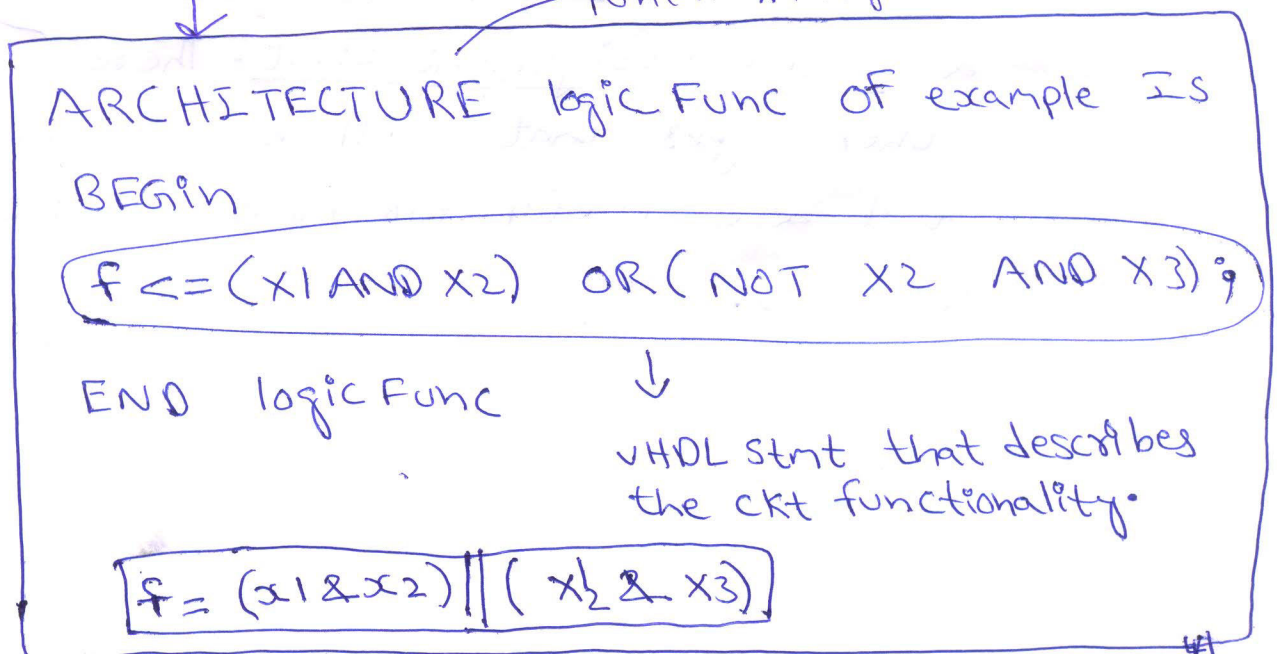 ARCHITECTURE logic Func OF example Is
BEGin
f <= (X1 AND X2) OR ( NOT X2 AND X3) ;
END logic Func
VHDL Stmt that describes
the ckt functionality.
f = (x1 & x2) || ( x2' & x3)